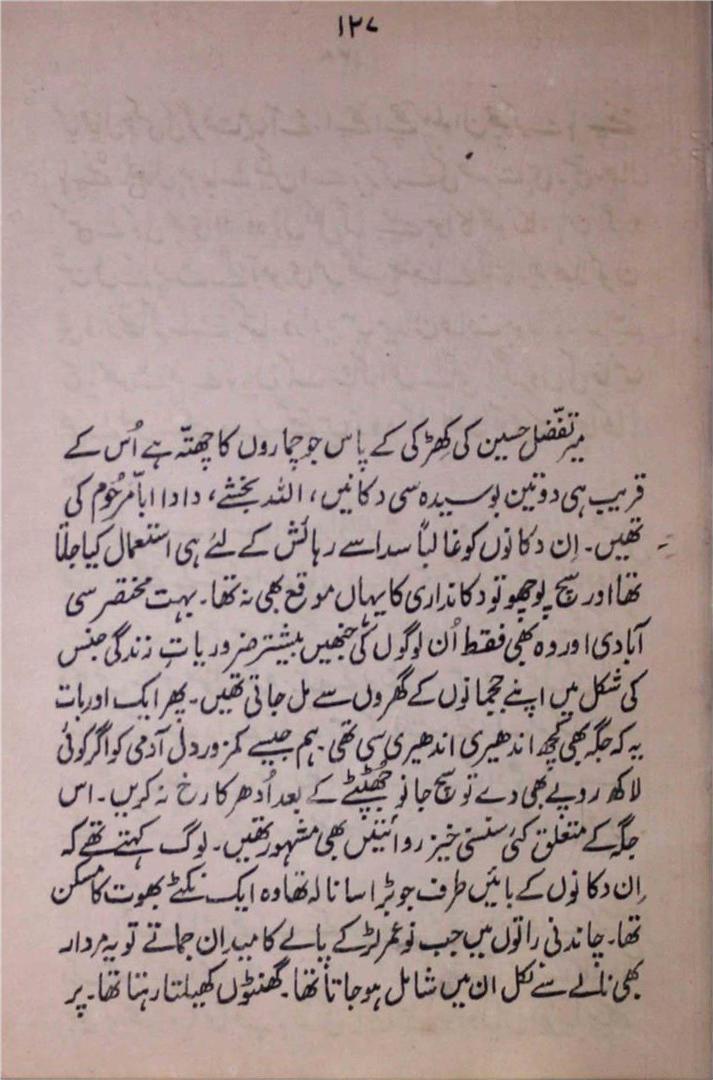 ۱۲۷
میر تفضّل حسین کی کھڑکی کے پاس جو چماروں کا چھتّہ ہے اُس کے
قریب ہی دو تین بوسیدہ سی دکانیں، اللہ بخشے، دادا ابّا مرحُوم کی
تھیں۔ اِن دکانوں کو غالباً سدا سے رہائش کے لئے ہی استعمال کیا جاتا
تھا اور سچ پوچھو تو دکانداری کا یہاں موقع بھی نہ تھا۔ بہت مختصر سی
آبادی اور وہ بھی فقط اُن لوگوں کی جنھیں بیشتر ضروریاتِ زندگی جنس
کی شکل میں اپنے ججمانوں کے گھروں سے مل جاتی تھیں۔ پھر ایک اور بات
یہ کہ جگہ بھی کچھ اندھیری اندھیری سی تھی۔ ہم جیسے کمزور دل آدمی کو اگر کوئی
لاکھ روپے بھی دے تو سچ جانو جھُٹپٹے کے بعد اُدھر کا رخ نہ کریں۔ اس
جگہ کے متعلق کئی سنسنی خیز روائتیں بھی مشہور تھیں۔ لوگ کہتے تھے کہ
اِن دکانوں کے بائیں طرف جو بڑا سا نالہ تھا وہ ایک نکٹے بھوت کا مسکن
تھا۔ چاندنی راتوں میں جب نو عمر لڑکے پالے کا میدان جماتے تو یہ مردار
بھی نالے سے نکل ان میں شامل ہو جاتا تھا۔ گھنٹوں کھیلتا رہتا تھا۔ پر